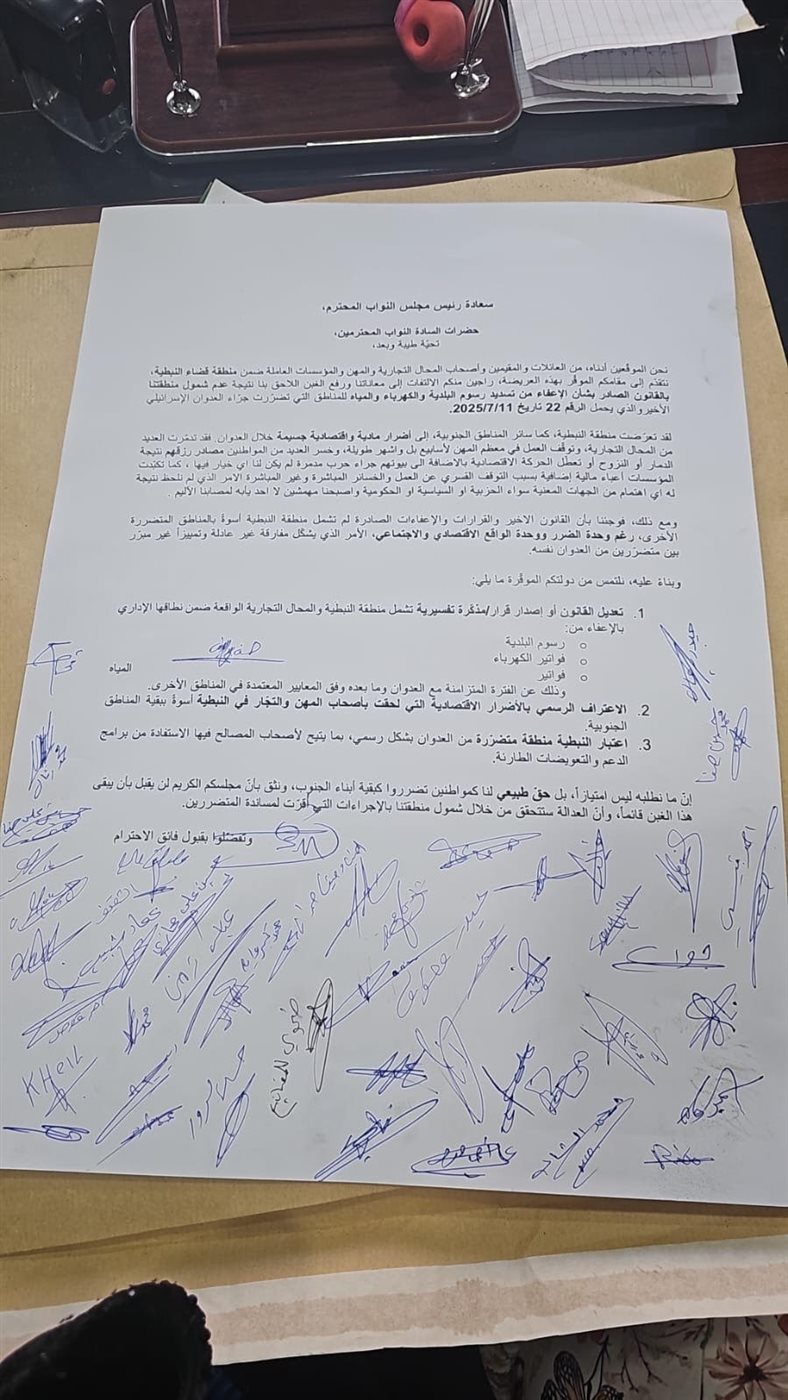 سعادة رئيس مجلس النواب المحترم،
حضرات السادة النواب المحترمين،
تحيّة طيبة وبعد،
نحن الموقّعين أدناه، من العائلات والمقيمين وأصحاب المحال التجارية والمهن والمؤسسات العاملة ضمن منطقة قضاء النبطية،
نتقدّم إلى مقامكم الموقّر بهذه العريضة، راجين منكم الالتفات إلى معاناتنا ورفع الغبن اللاحق بنا نتيجة عدم شمول منطقتنا
بالقانون الصادر بشأن الإعفاء من تسديد رسوم البلدية والكهرباء والمياه للمناطق التي تضررت جرّاء العدوان الإسرائيلي
الأخير والذي يحمل الرقم 22 تاريخ 2025/7/11.
لقد تعرّضت منطقة النبطية، كما سائر المناطق الجنوبية، إلى أضرار مادية واقتصادية جسيمة خلال العدوان. فقد تدمّرت العديد
من المحال التجارية، وتوقّف العمل في معظم المهن لأسابيع بل واشهر طويلة، وخسر العديد من المواطنين مصادر رزقهم نتيجة
الدمار أو النزوح أو تعطّل الحركة الاقتصادية بالاضافة الى بيوتهم جراء حرب مدمرة لم يكن لنا اي خيار فيها ، كما تكبّدت
المؤسسات أعباء مالية إضافية بسبب التوقف القسري عن العمل والخسائر المباشرة وغير المباشرة الامر الذي لم نلحظ نتيجة
له اي اهتمام من الجهات المعنية سواء الحزبية او السياسية او الحكومية واصبحنا مهمشين لا احد يأبه لمصابنا الأليم .
ومع ذلك، فوجئنا بأن القانون الاخير والقرارات والإعفاءات الصادرة لم تشمل منطقة النبطية أسوةً بالمناطق المتضررة
الأخرى، رغم وحدة الضرر ووحدة الواقع الاقتصادي والاجتماعي، الأمر الذي يشكّل مفارقة غير عادلة وتمييزاً غير مبرّر
بين متضرّرين من العدوان نفسه.
وبناءً عليه، نلتمس من دولتكم الموقّرة ما يلي:
1. تعديل القانون أو إصدار قرار/مذكّرة تفسيرية تشمل منطقة النبطية والمحال التجارية الواقعة ضمن نطاقها الإداري
بالإعفاء من:
o رسوم البلدية
o فواتير الكهرباء
o فواتير المياه
وذلك عن الفترة المتزامنة مع العدوان وما بعده وفق المعايير المعتمدة في المناطق الأخرى.
2. الاعتراف الرسمي بالأضرار الاقتصادية التي لحقت بأصحاب المهن والتجّار في النبطية أسوةً ببقية المناطق
الجنوبية.
3. اعتبار النبطية منطقة متضرّرة من العدوان بشكل رسمي، بما يتيح لأصحاب المصالح فيها الاستفادة من برامج
الدعم والتعويضات الطارئة.
إنّ ما نطلبه ليس امتيازاً، بل حقّ طبيعي لنا كمواطنين تضرروا كبقية أبناء الجنوب، ونثق بأنّ مجلسكم الكريم لن يقبل بأن يبقى
هذا الغبن قائماً، وأنّ العدالة ستتحقق من خلال شمول منطقتنا بالإجراءات التي أُقرّت لمساندة المتضررين.
وتفضّلوا بقبول فائق الاحترام
KHeiL